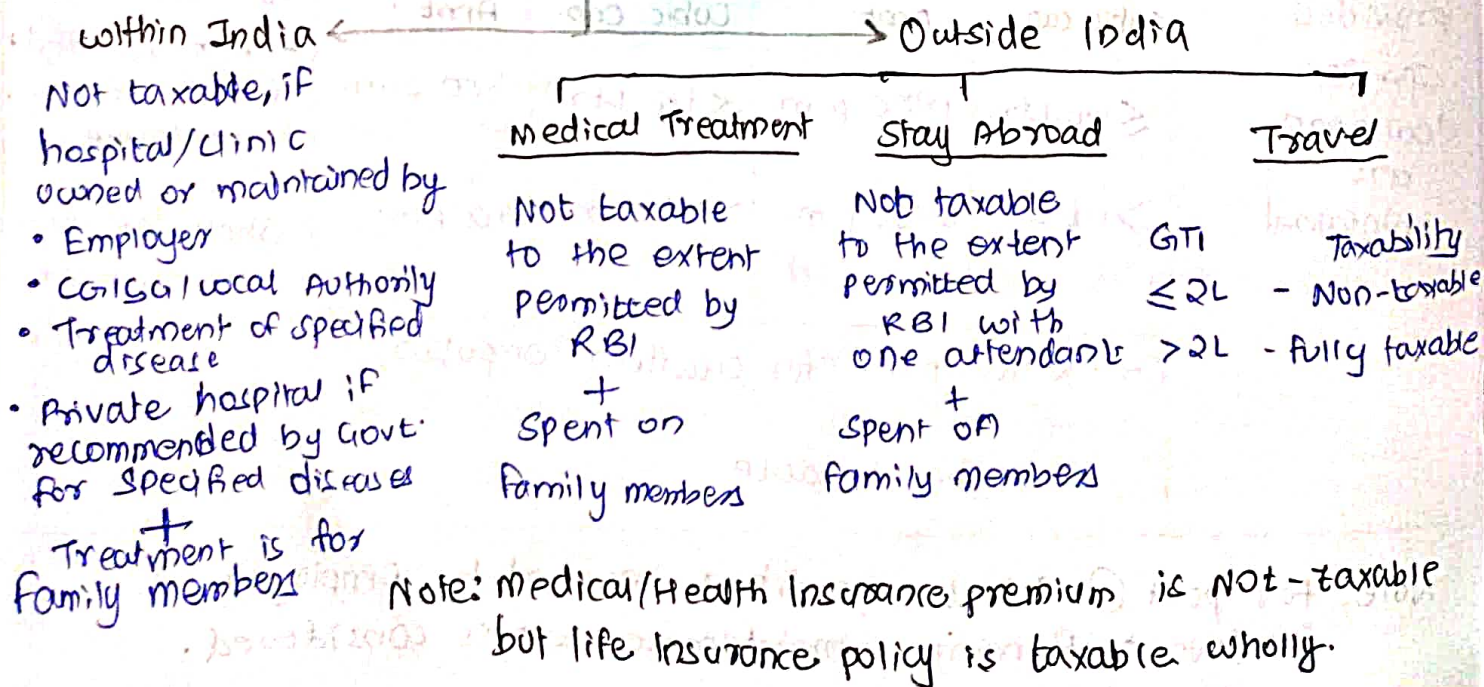 within India
Outside India
Not taxable, if
hospital/clinic
owned or maintained by
• Employer
• CG/SG/Local Authority
• Treatment of specified
disease
• Private hospital if
recommended by Govt.
for specified diseases
+
Treatment is for
family members
Medical Treatment
Not taxable
to the extent
permitted by
RBI
+
Spent on
family members
Stay Abroad
Not taxable
to the extent
permitted by
RBI with
one attendant
+
Spent on
family members
Travel
GTI Taxability
≤2L - Non-taxable
>2L - fully taxable
Note: Medical/Health Insurance premium is Not-taxable
but life Insurance policy is taxable wholly.